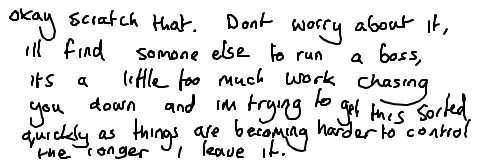 okay scratch that. Dont worry about it,
ill find somone else to run a boss,
its a little too much work chasing
you down and im trying to get this sorted
quickly as things are becoming harder to control
the longer i leave it.